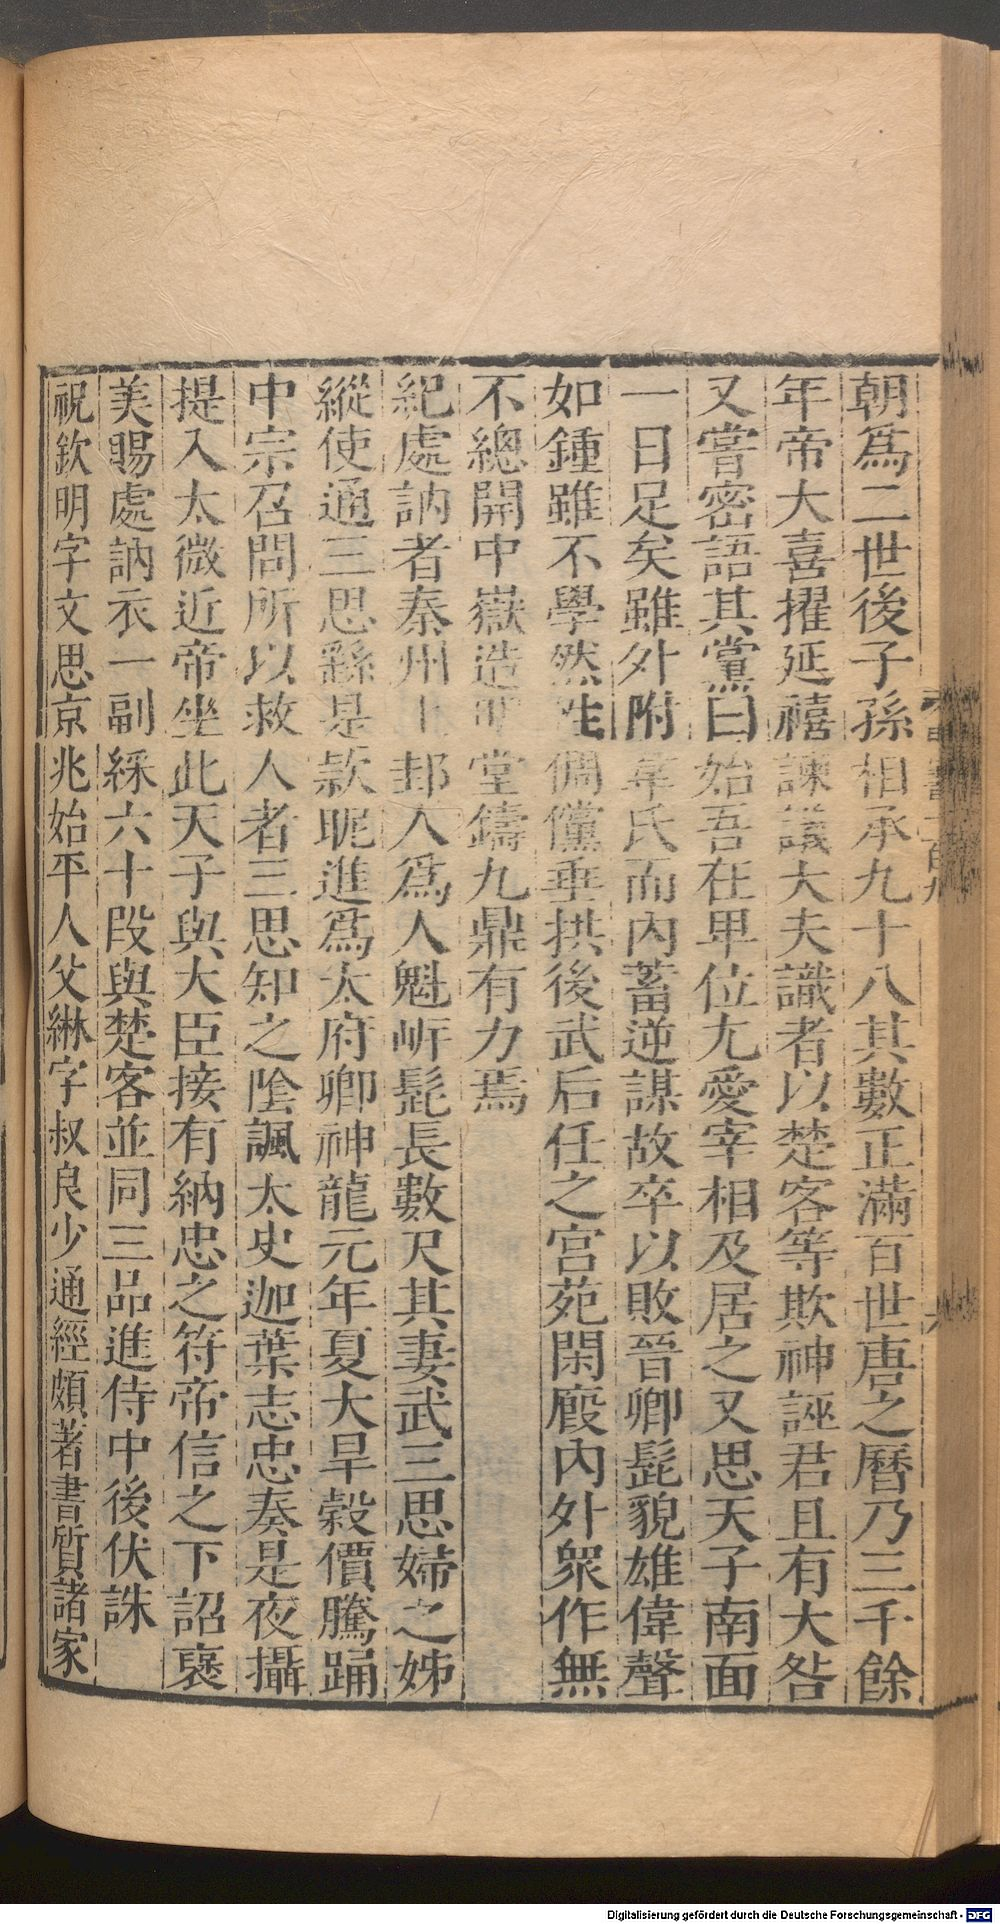 朝爲二世後子孫相承九十八其數正滿百世唐之曆乃三千餘
年帝大喜擢延禧諫議大夫識者以楚客等欺神誣君且有大咎
又嘗密語其黨曰始吾在卑位尢愛宰相及居之又思天子南面
一日足矣雖外附韋氏而內蓄逆謀故卒以敗晉卿髭貌雄偉聲
如鍾雖不學然性倜儻垂拱後武后任之宮苑閑廏內外衆作無
不總開中嶽造明堂鑄九鼎有力焉
紀處訥者秦州上邽人爲人魁岸髭長數尺其妻武三思婦之姊
縱使通三思繇是款昵進爲太府卿神龍元年夏大旱穀價騰踊
中宗召問所以救人者三思知之陰諷太史迦葉志忠奏是夜攝
提入太微近帝坐此天子與大臣接有納忠之符帝信之下詔襃
美賜處訥衣一副綵六十段與楚客並同三品進侍中後伏誅
祝欽明字文思京兆始平人父綝字叔良少通經頗著書質諸家
Digitalisierung gefördert durch die Deutsche Forschungsgemeinschaft - DFG